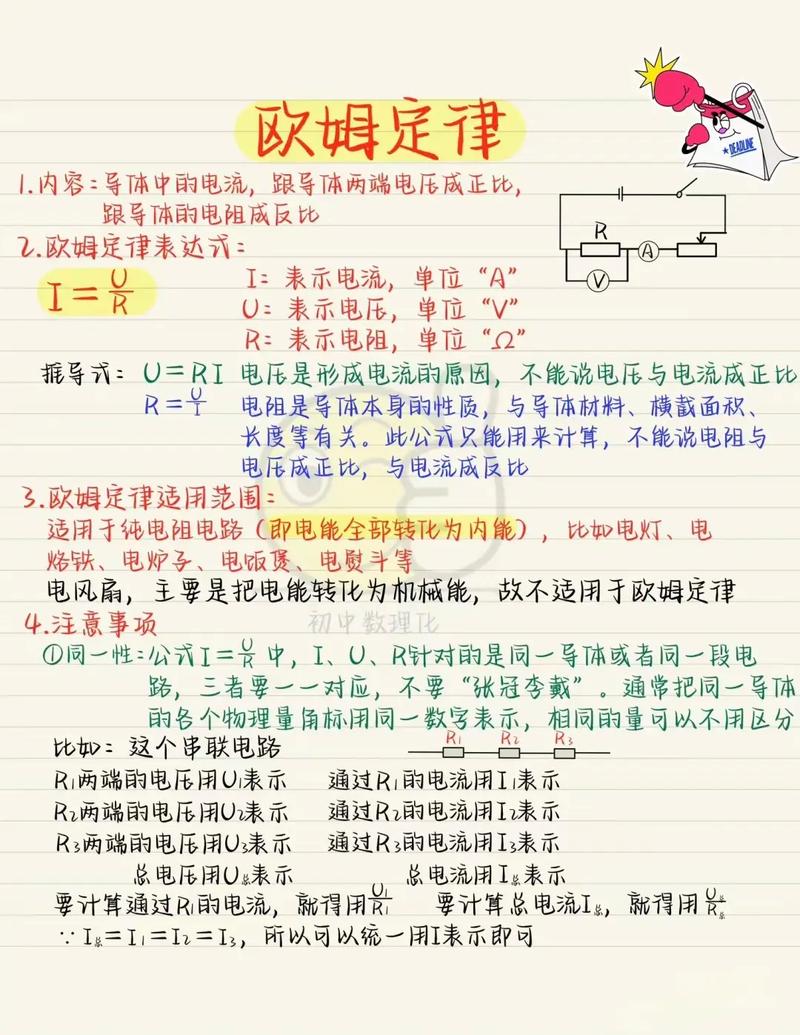 欧姆定律
DEADLINE
1.内容：导体中的电流，跟导体两端电压成正比，
跟导体的电阻成反比
R
A
V
2.欧姆定律表达式：
I=U/R
I：表示电流，单位“A”
U：表示电压，单位“V”
R：表示电阻，单位“Ω”
推导式：U=RI 电压是形成电流的原因，不能说电压与电流成正比
R=U/I 电阻是导体本身的性质，与导体材料、横截面积、
长度等有关。此公式只能用来计算，不能说电阻与
电压成正比，与电流成反比
3.欧姆定律适用范围：
适用于纯电阻电路（即电能全部转化为内能），比如电灯、电
烙铁、电炉子、电饭煲、电熨斗等
电风扇，主要是把电能转化为机械能，故不适用于欧姆定律
初中数理化
4.注意事项
①同一性：公式I=U/R中，I、U、R针对的是同一导体或者同一段电
路，三者要一一对应，不要“张冠李戴”。通常把同一导体
的各个物理量角标用同一数字表示，相同的量可以不用区分
比如：这个串联电路
R₁ R₂ R₃
R₁两端的电压用U₁表示 通过R₁的电流用I₁表示
R₂两端的电压用U₂表示 通过R₂的电流用I₂表示
R₃两端的电压用U₃表示 通过R₃的电流用I₃表示
总电压用U总表示 总电流用I总表示
要计算通过R₁的电流，就得用U₁/R₁ 要计算总电流I总，就得用U总/R总
∵I总=I₁=I₂=I₃，所以可以统一用I表示即可